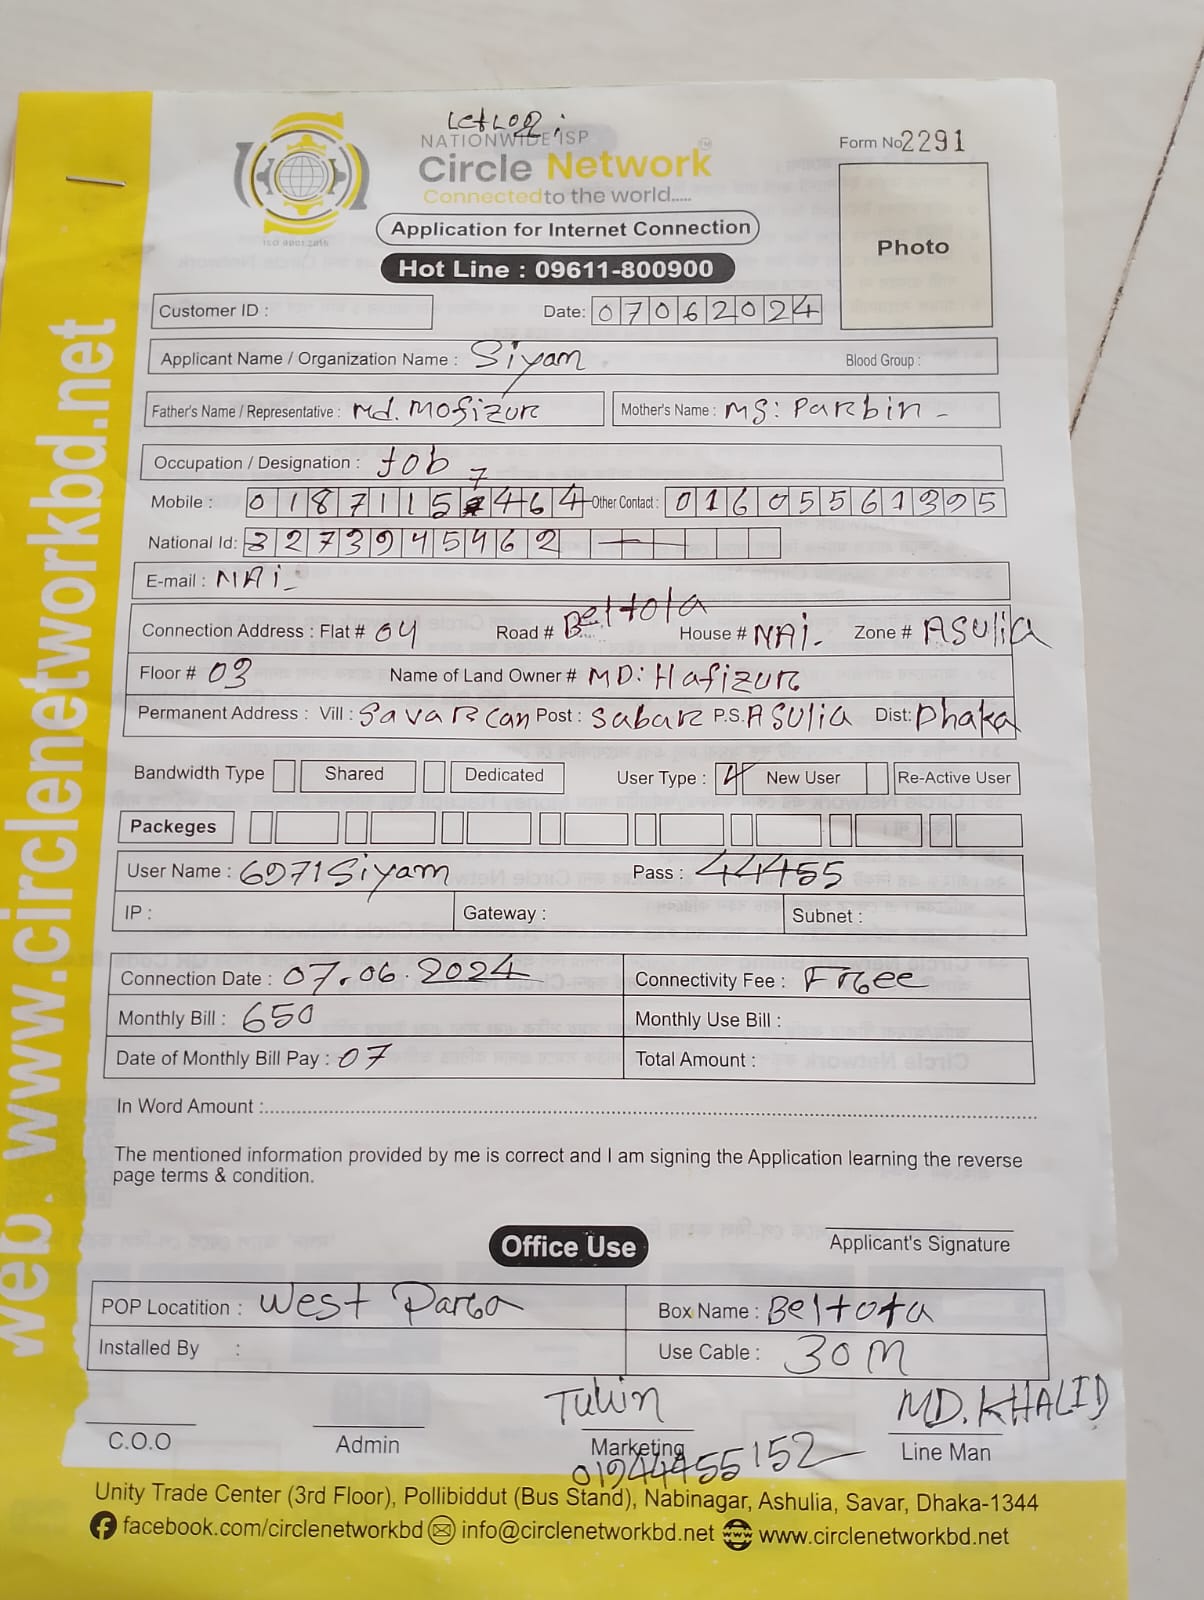 NATIONWIDE ISP
Circle Network
Connected to the world.....
ISO 9001:2015
Application for Internet Connection
Hot Line : 09611-800900
Form No 2291
Photo
Customer ID :
Date: 07062024
Applicant Name / Organization Name : Siyam Blood Group :
Father's Name / Representative : Md. Mofizur Mother's Name : MS: Parbin -
Occupation / Designation : Job
Mobile : 01871157464 Other Contact : 01605561395
National Id: 3273945462
E-mail : NAi
Connection Address : Flat # 04 Road # Beltola House # NAi- Zone # ASuliA
Floor # 03 Name of Land Owner # MD: Hafizur
Permanent Address : Vill : Savar Can Post : Sabar P.S. ASULIA Dist: Dhaka
Bandwidth Type Shared Dedicated User Type : New User Re-Active User
Packeges
User Name : 6071Siyam Pass : 44455
IP : Gateway : Subnet :
Connection Date : 07.06.2024 Connectivity Fee : Free
Monthly Bill : 650 Monthly Use Bill :
Date of Monthly Bill Pay : 07 Total Amount :
In Word Amount :
The mentioned information provided by me is correct and I am signing the Application learning the reverse
page terms & condition.
Applicant's Signature
Office Use
POP Locatition : West Para Box Name : Beltota
Installed By : Use Cable : 30M
Tuhin MD. KHALID
C.O.O Admin Marketing Line Man
01944455152
Unity Trade Center (3rd Floor), Pollibiddut (Bus Stand), Nabinagar, Ashulia, Savar, Dhaka-1344
facebook.com/circlenetworkbd info@circlenetworkbd.net www.circlenetworkbd.net
web: www.circlenetworkbd.net